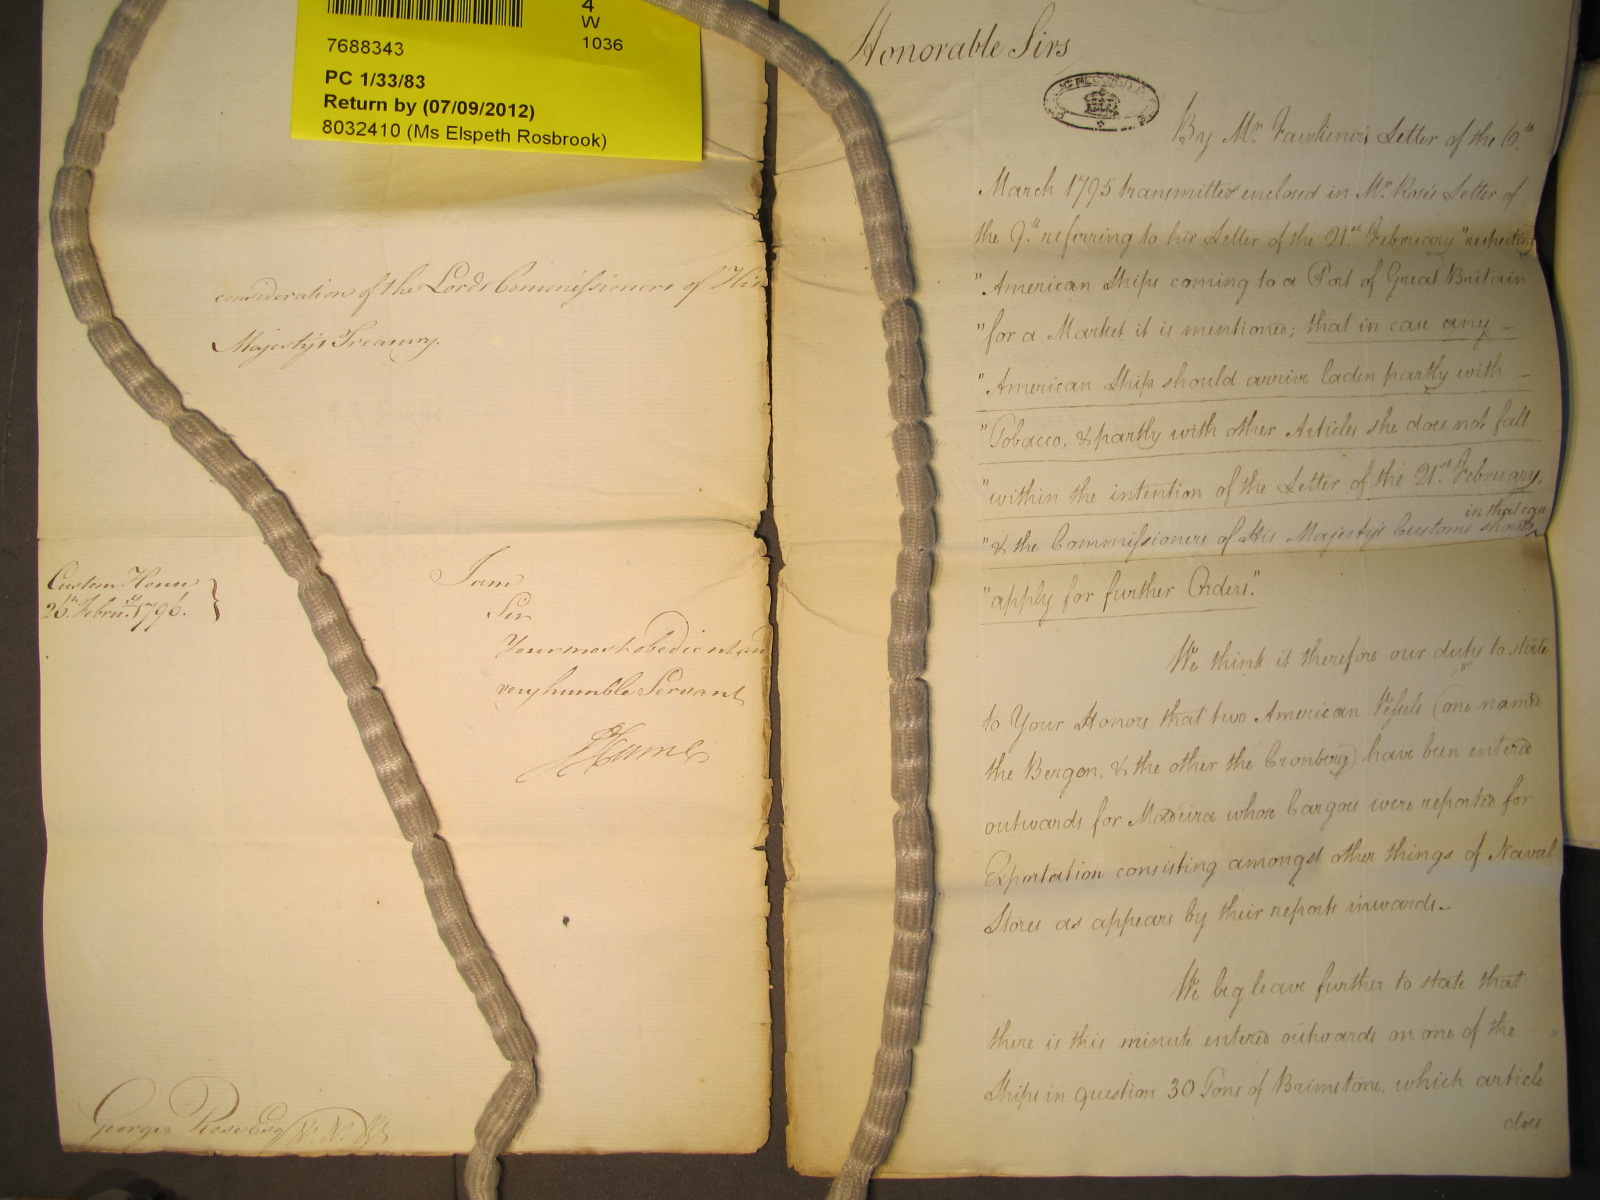 4
W
1036
7688343
PC 1/33/83
Return by (07/09/2012)
8032410 (Ms Elspeth Rosbrook)
consideration of the Lords Commissioners of His
Majesty's Treasury.
Custom House
26th Febru.ry 1796.
I am
Sir
Your most obedient and
very humble Servant
JHume
George Rose Esqr
Honorable Sirs
By Mr Fawkener's Letter of the 6th
March 1795 transmitted enclosed in Mr Rose's Letter of
the 9th referring to his Letter of the 21st February "respecting
"American Ships coming to a Port of Great Britain
"for a Market it is mentioned; that in case any –
"American Ships should arrive laden partly with –
"Tobacco, & partly with other Articles she does not fall
"within the intention of the Letter of the 21st February,
in that case
"& the Commissioners of His Majesty's Customs should
"apply for further Orders".
We think it therefore our duty to state
to Your Honors that two American Vessels (one named
the Bergen, & the other the Cronberg) have been entered
outwards for Madeira whose Cargoes were reported for
Exportation consisting amongst other things of Naval
Stores as appears by their reports inwards –
We beg leave further to state that
there is this minute entered outwards on one of the
Ships in question 30 Tons of Brimstone, which article
does